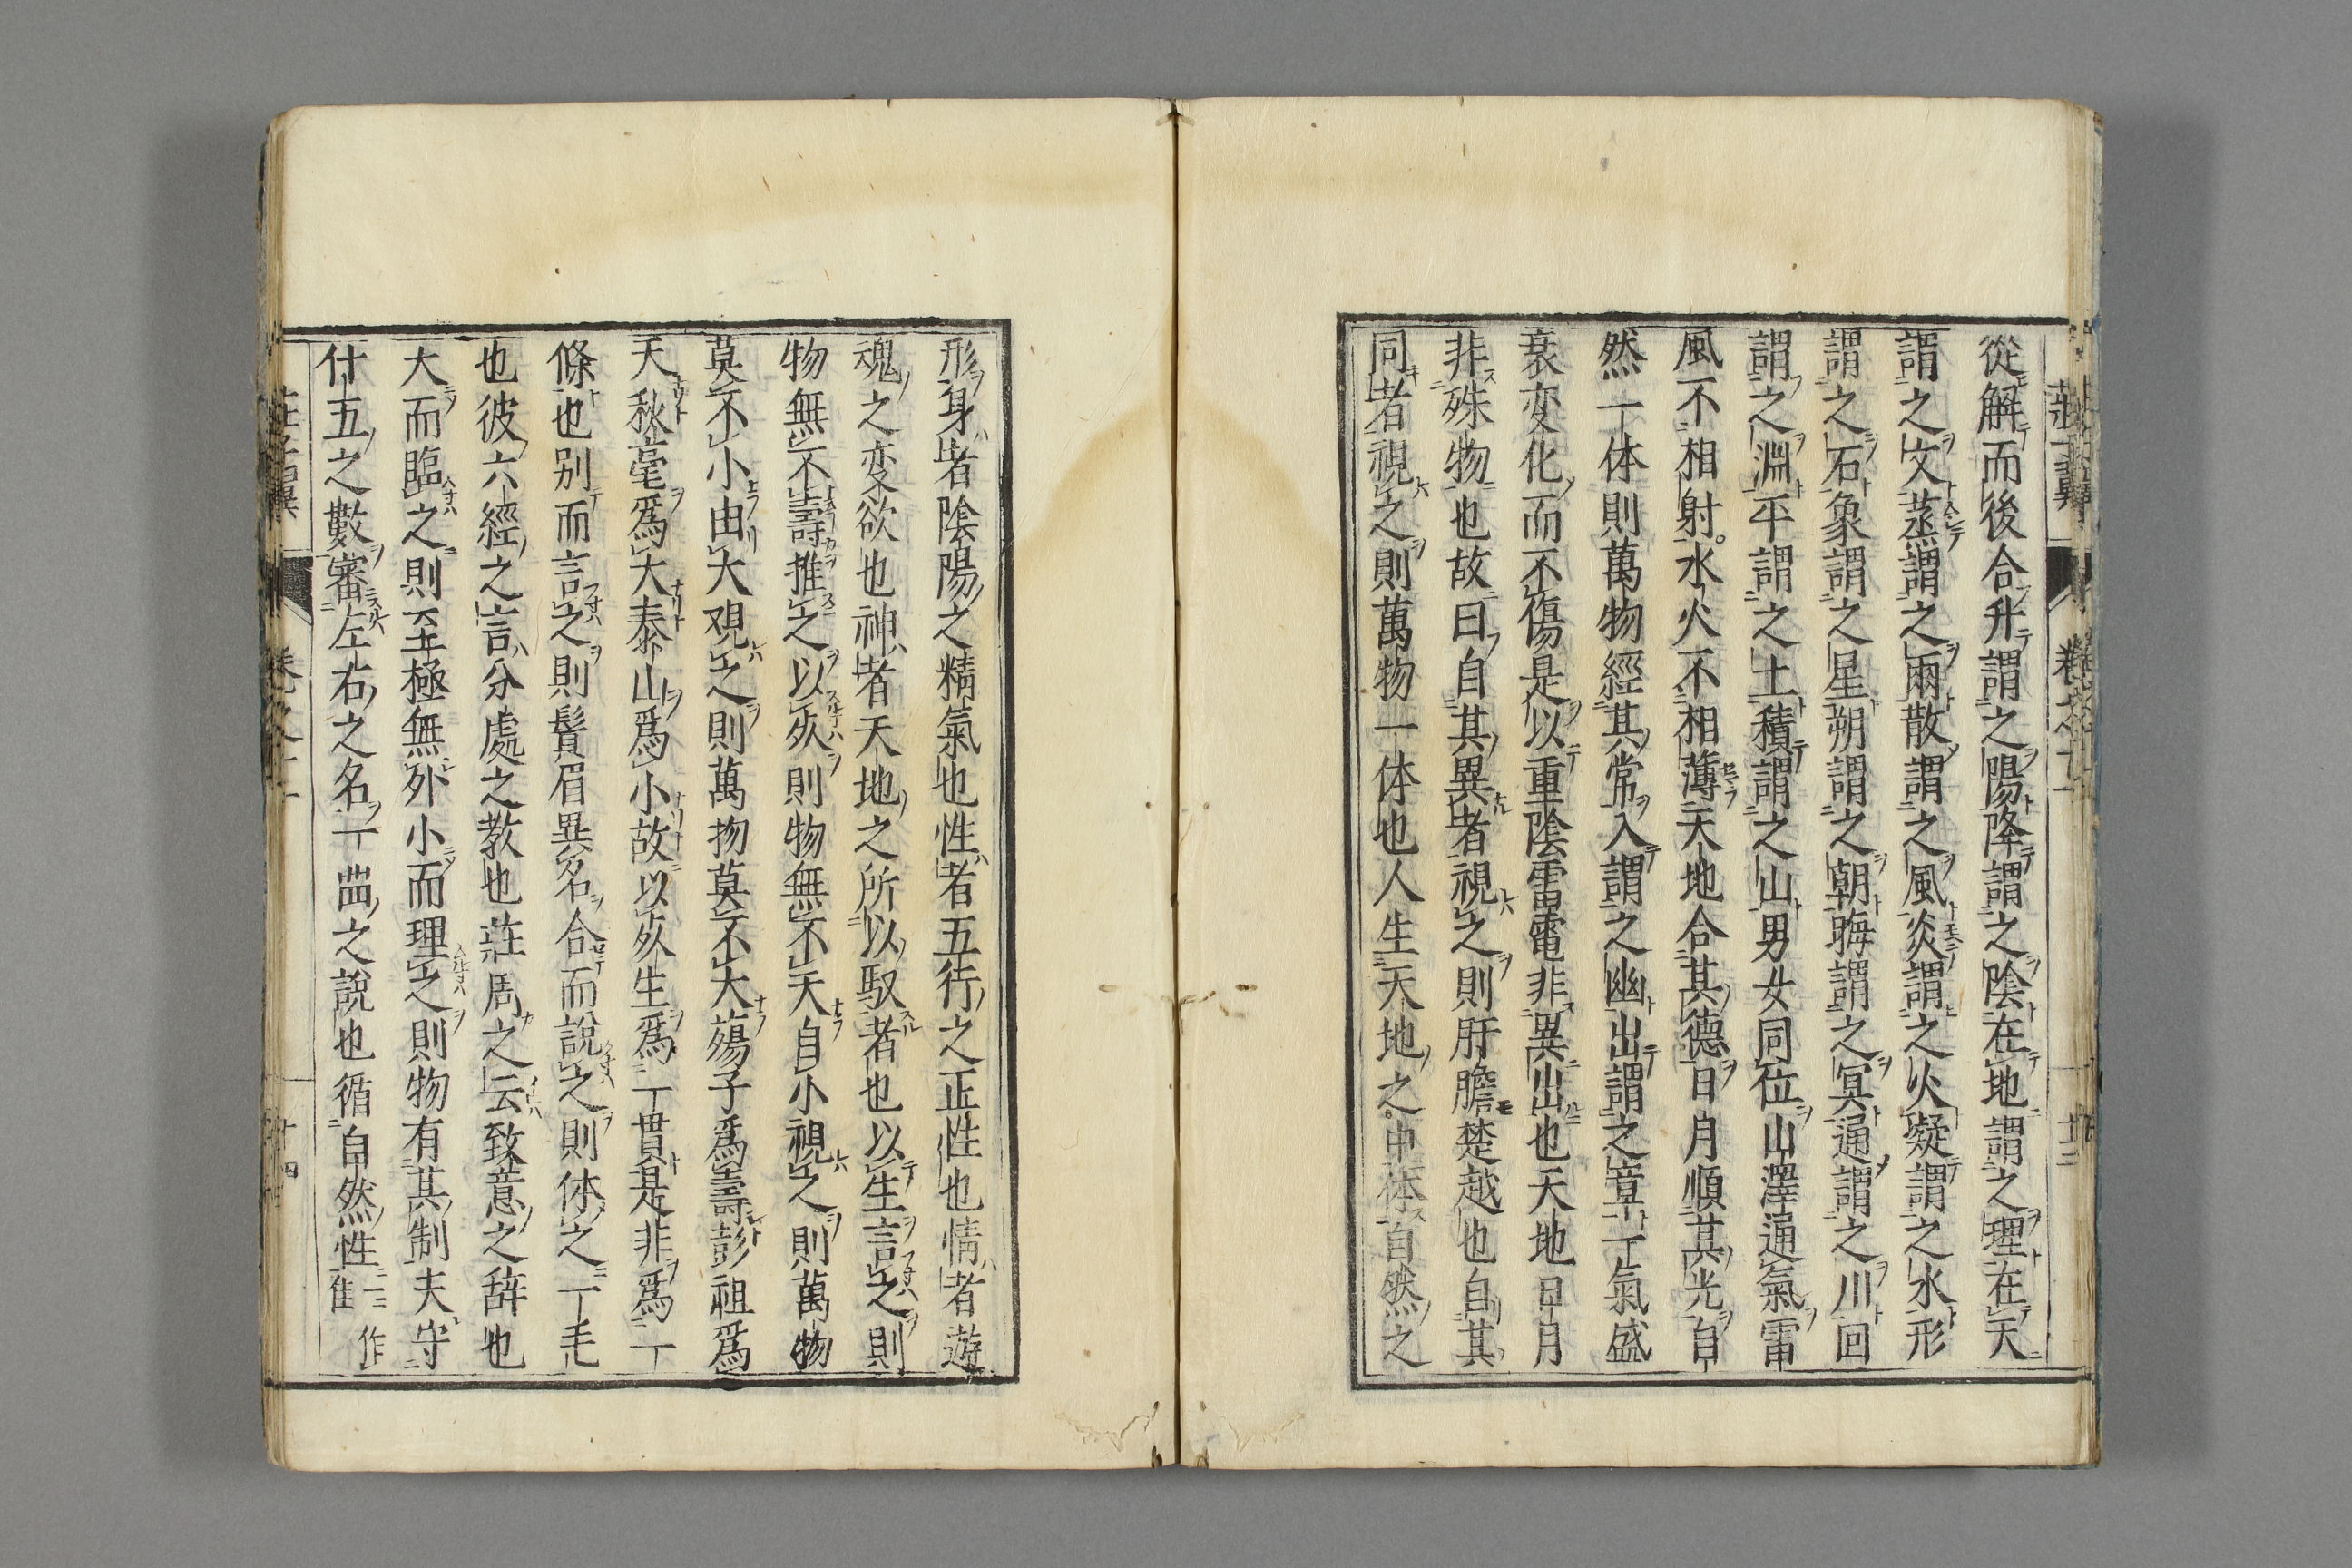 從解而後合升謂之陽降謂之陰在地謂之理在天
謂之文蒸謂之雨散謂之風炎謂之火凝謂之水形
謂之石象謂之星朔謂之朝晦謂之冥通謂之川回
謂之淵平謂之土積謂之山男女同位山澤通氣雷
風不相射水火不相薄天地合其德日月順其光自
然一体則萬物經其常入謂之幽出謂之章一氣盛
衰变化而不傷是以重陰雷電非異出也天地日月
非殊物也故曰自其異者視之則肝膽楚越也自其
同者視之則萬物一体也人生天地之中体自然之
形身者陰陽之精氣也性者五行之正性也情者遊
魂之变欲也神者天地之所以馭者也以生言之則
物無不壽推之以死則物無不夭自小視之則萬物
莫不小由大观之則萬物莫不大殤子爲壽彭祖爲
夭秋毫爲大泰山爲小故以死生爲一貫是非爲一
條也别而言之則鬚眉異名合而說之則体之一毛
也彼六經之言分處之教也莊周之云致意之辞也
大而臨之則至極無外小而理之則物有其制夫守
什五之數審左右之名一曲之說也循自然性一作隹
莊子翼
十四